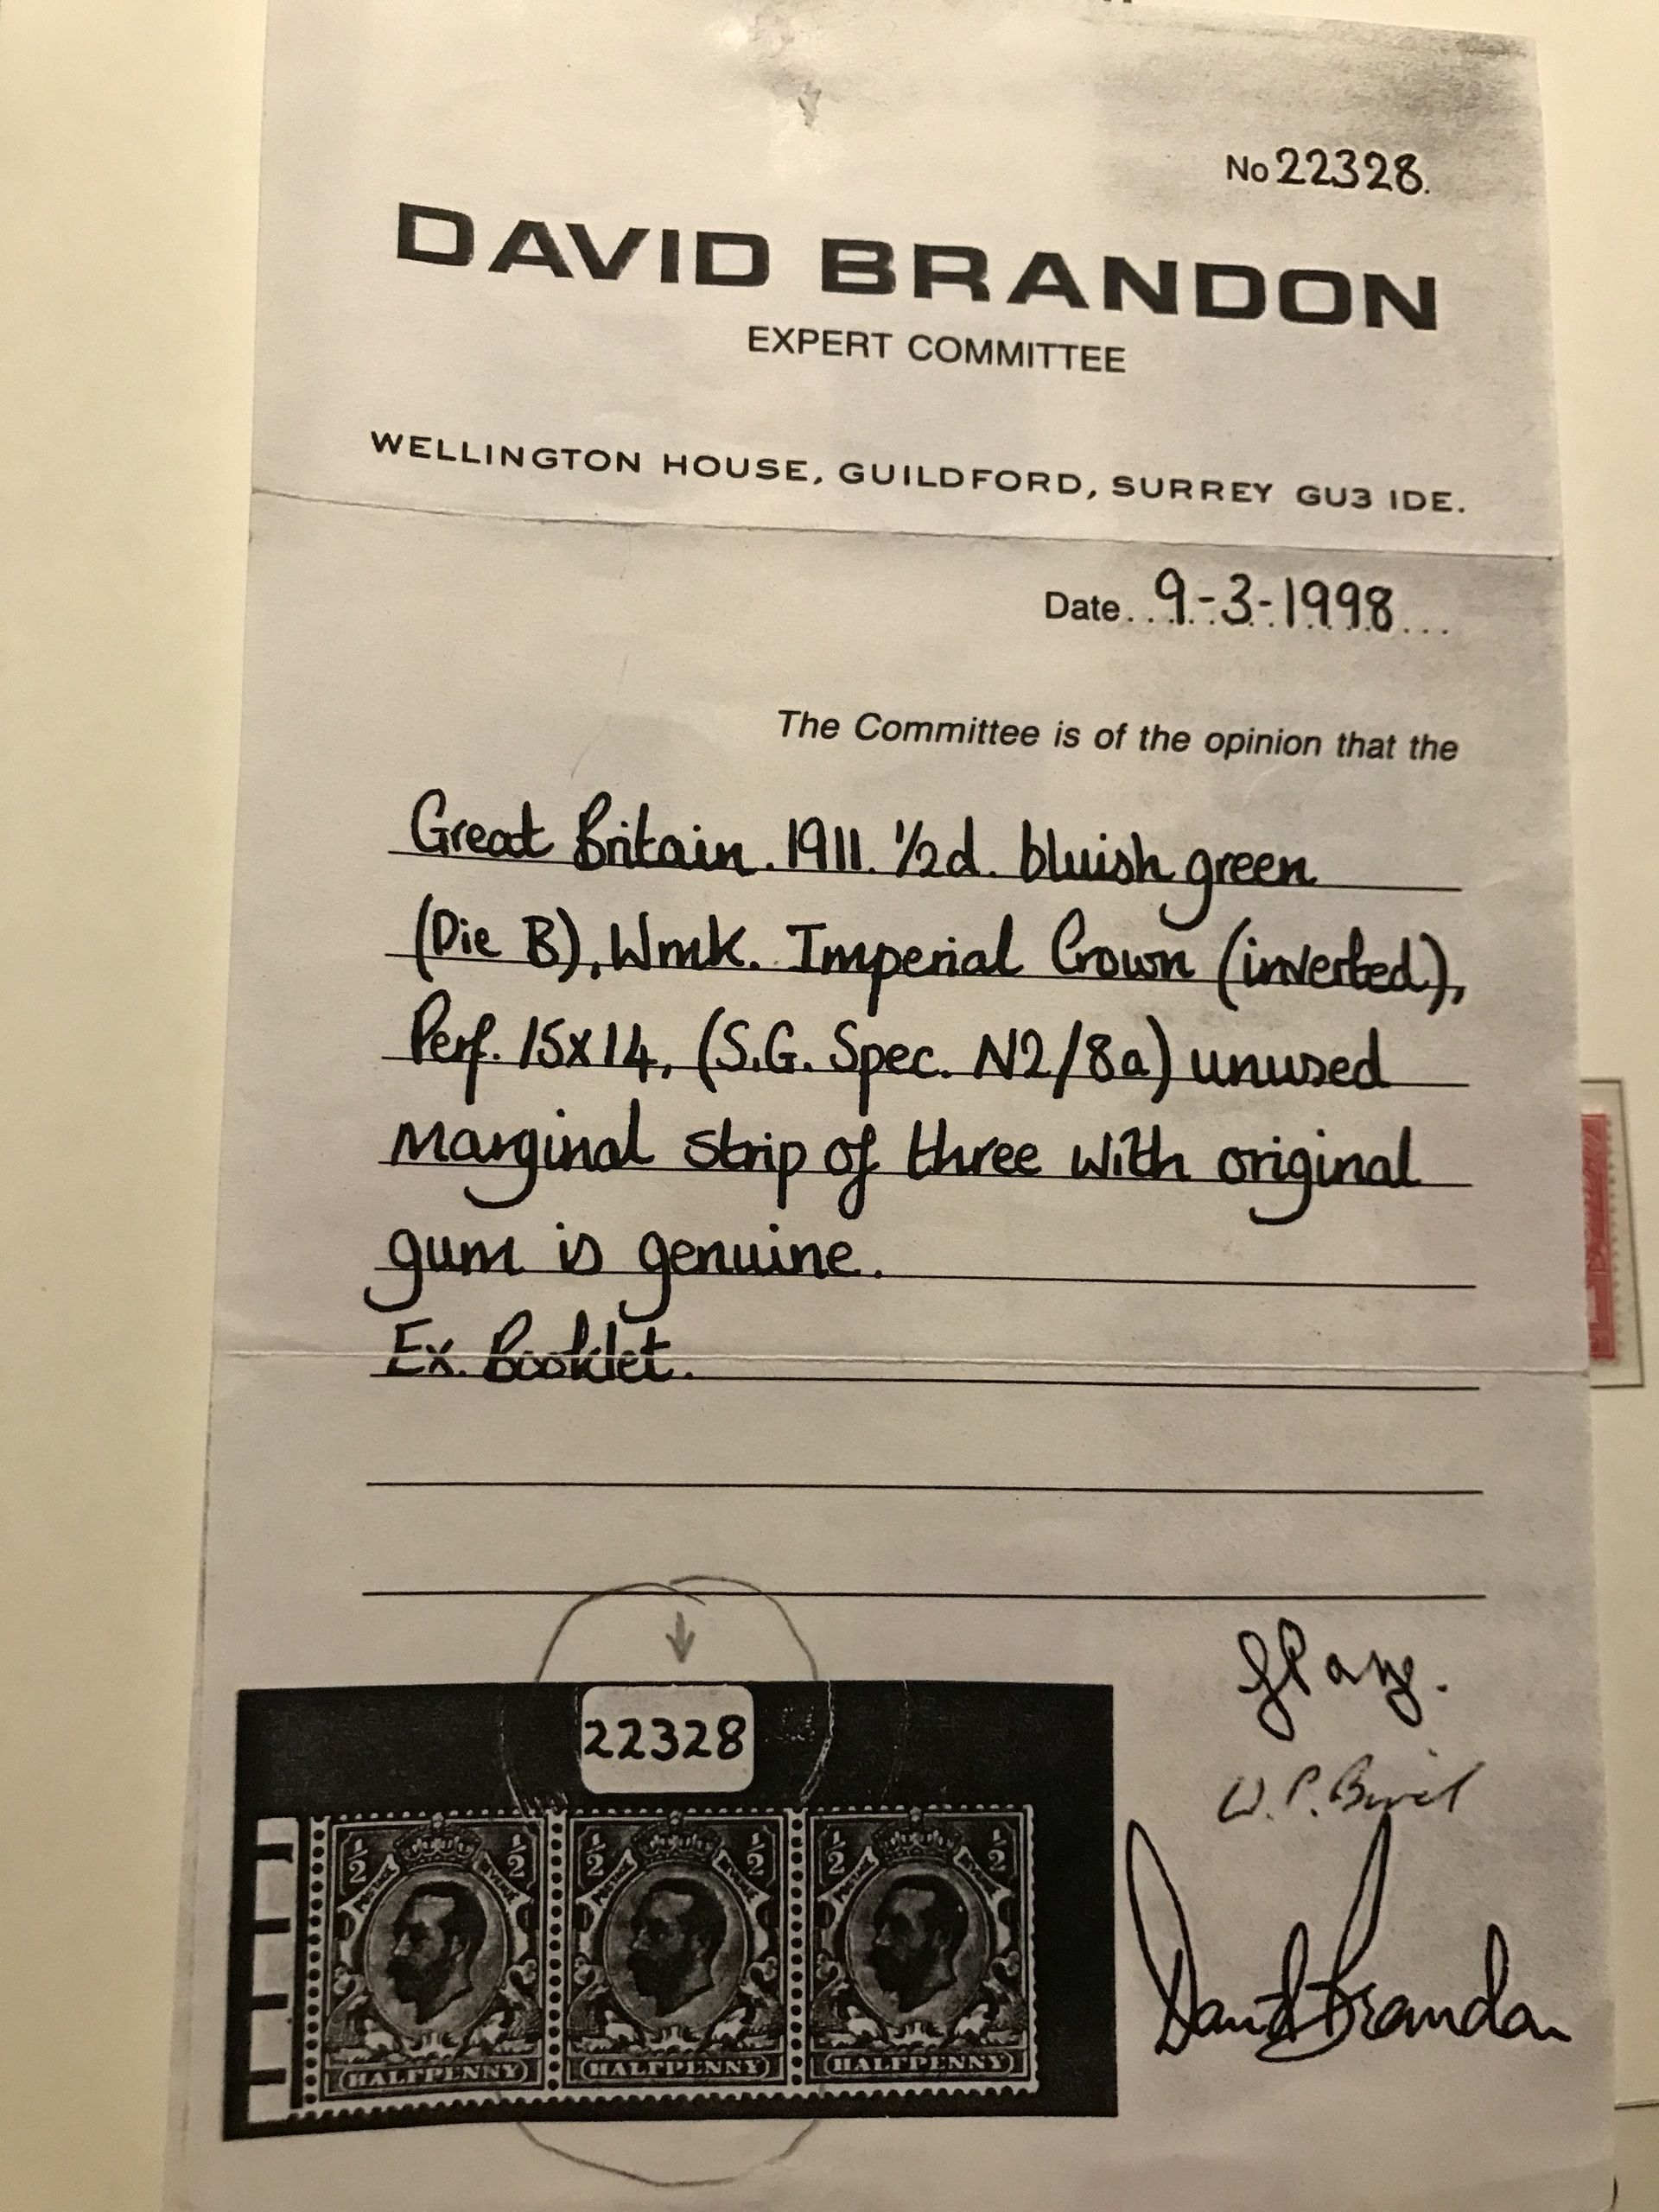 No 22328.
DAVID BRANDON
EXPERT COMMITTEE
WELLINGTON HOUSE, GUILDFORD, SURREY GU3 IDE.
Date...9-3-1998...
The Committee is of the opinion that the
Great Britain. 1911. ½d. bluish green
(Die B), Wmk. Imperial Crown (inverted),
Perf. 15x14, (S.G. Spec. N2/8a) unused
marginal strip of three with original
gum is genuine.
Ex. Booklet.
22328
½ ½ ½ ½ ½ ½
POSTAGE REVENUE POSTAGE REVENUE POSTAGE REVENUE
HALFPENNY HALFPENNY HALFPENNY
David Brandon